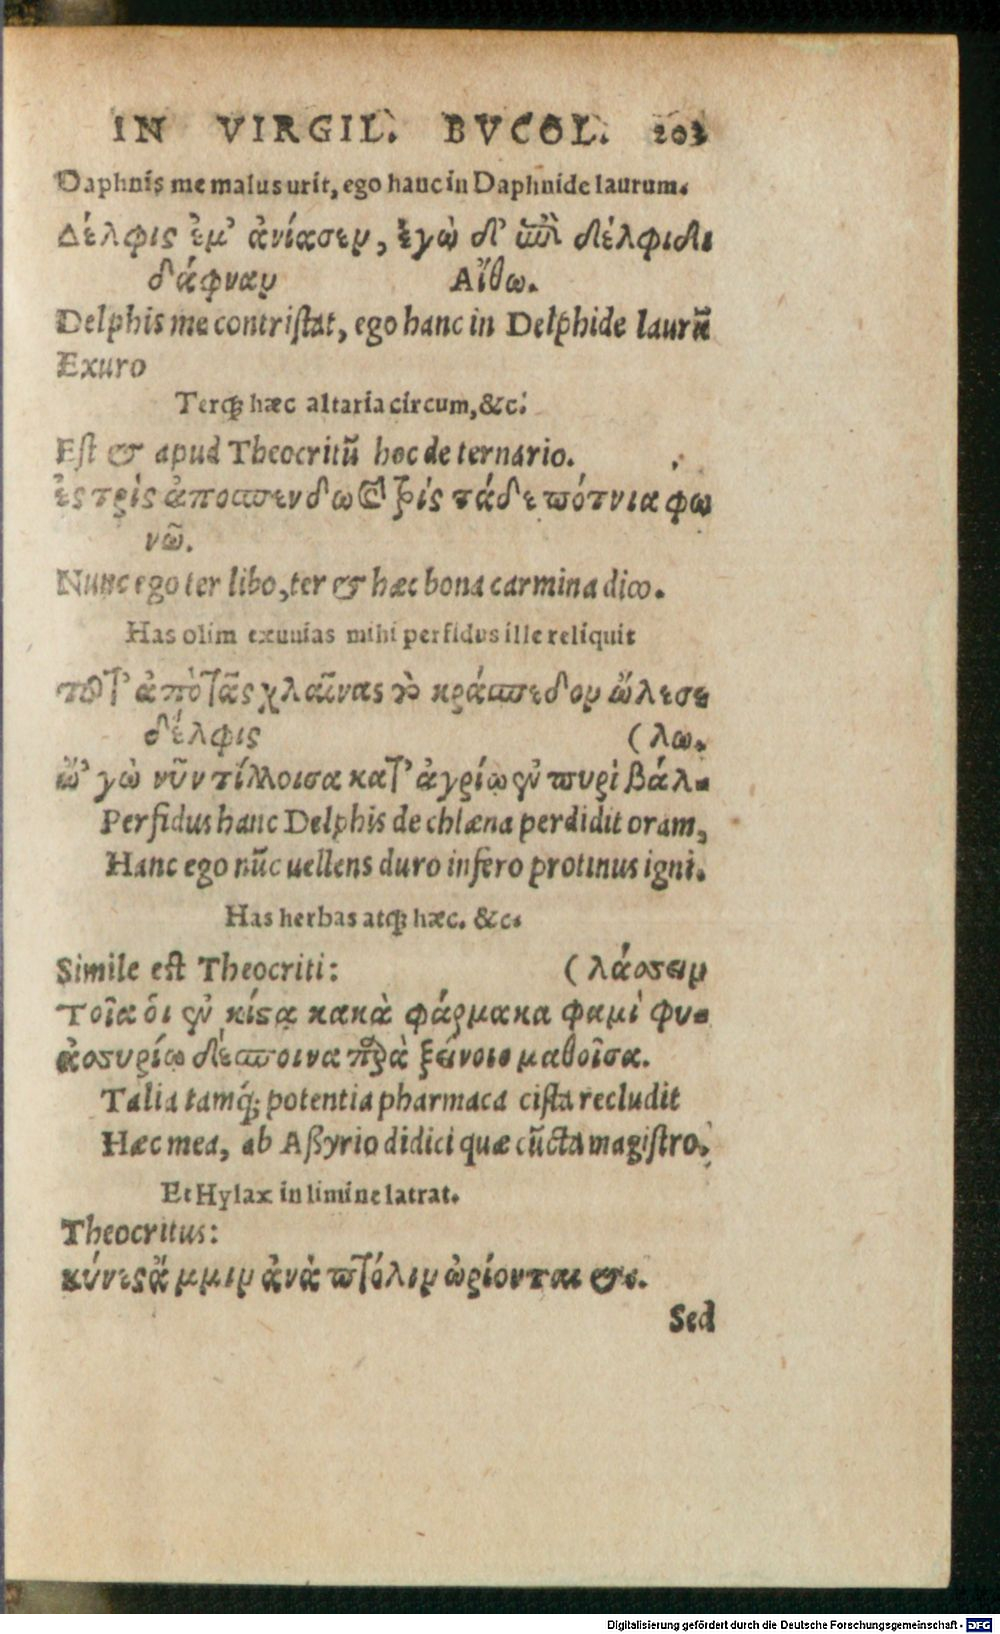 IN VIRGIL. BVCOL. 203
Daphnis me malus urit, ego hanc in Daphnide laurum.
Δέλφις ἔμ' ἀνίασεν, ἐγὼ δ' ἐπὶ δέλφιδι
δάφναν Αἴθω.
Delphis me contristat, ego hanc in Delphide laurũ
Exuro
Terq; hæc altaria circum, &c.
Est & apud Theocritũ hoc de ternario.
ἐς τρὶς ἀποσπενδω καὶ τρὶς τάδε πότνια φω
νῶ.
Nunc ego ter libo, ter & hæc bona carmina dico.
Has olim exuuias mihi perfidus ille reliquit
τοῦτ' ἀπὸ τᾶς χλαῖνας τὸ κράσπεδον ὤλεσε
δέλφις (λω.
ὢ' γὼ νῦν τίλλοισα κατ' ἀγρίῳ ἐν πυρὶ βάλ-
Perfidus hanc Delphis de chlæna perdidit oram,
Hanc ego nũc uellens duro infero protinus igni.
Has herbas atq; hæc. &c.
Simile est Theocriti: (λάσσειν
Τοῖα ὁι ἐν κίστᾳ κακὰ φάρμακα φαμὶ φυ-
ἀσσυρίω δέσποινα παρὰ ξείνοιο μαθοῖσα.
Talia tamq; potentia pharmaca cista recludit
Hæc mea, ab Aßyrio didici quæ cũcta magistro.
Et Hylax in limine latrat.
Theocritus:
κύνες ἄμμιν ἀνὰ πτόλιν ὠρίονται &c.
Sed
Digitalisierung gefördert durch die Deutsche Forschungsgemeinschaft - DFG